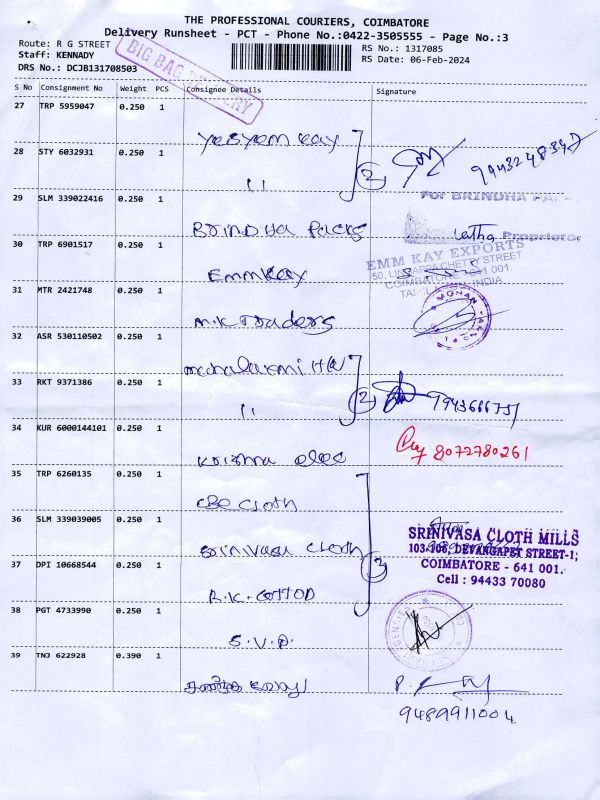 THE PROFESSIONAL COURIERS, COIMBATORE
Delivery Runsheet - PCT - Phone No.:0422-3505555 - Page No.:3
Route: R G STREET
RS No.: 1317085
Staff: KENNADY
RS Date: 06-Feb-2024
DRS No.: DCJB131708503
BIG BAG
S No Consignment No Weight PCS Consignee Details Signature
27 TRP 5959047 0.250 1
28 STY 6032931 0.250 1 11 2
29 SLM 339022416 0.250 1 BRINDHA Packs
FOR BRINDHA
Latha Proprietor
30 TRP 6901517 0.250 1 Emmkay
EMM KAY EXPORTS
50, CHETTY STREET
COIMBATORE - 641 001.
INDIA
31 MTR 2421748 0.250 1 M.K Traders
MOHAN
32 ASR 530110502 0.250 1 mahalaxmi H/W
33 RKT 9371386 0.250 1 11 2
34 KUR 6000144101 0.250 1 Krishna elec
8072780261
35 TRP 6260135 0.250 1 CBE Cloth
36 SLM 339039005 0.250 1 Srinivasa Cloth
SRINIVASA CLOTH MILLS
103-106, DEVANGAPET STREET-1,
COIMBATORE - 641 001.
Cell : 94433 70080
37 DPI 10668544 0.250 1 R.K. COTTON 3
38 PGT 4733990 0.250 1 S.V.P.
39 TNJ 622928 0.390 1
9489911004